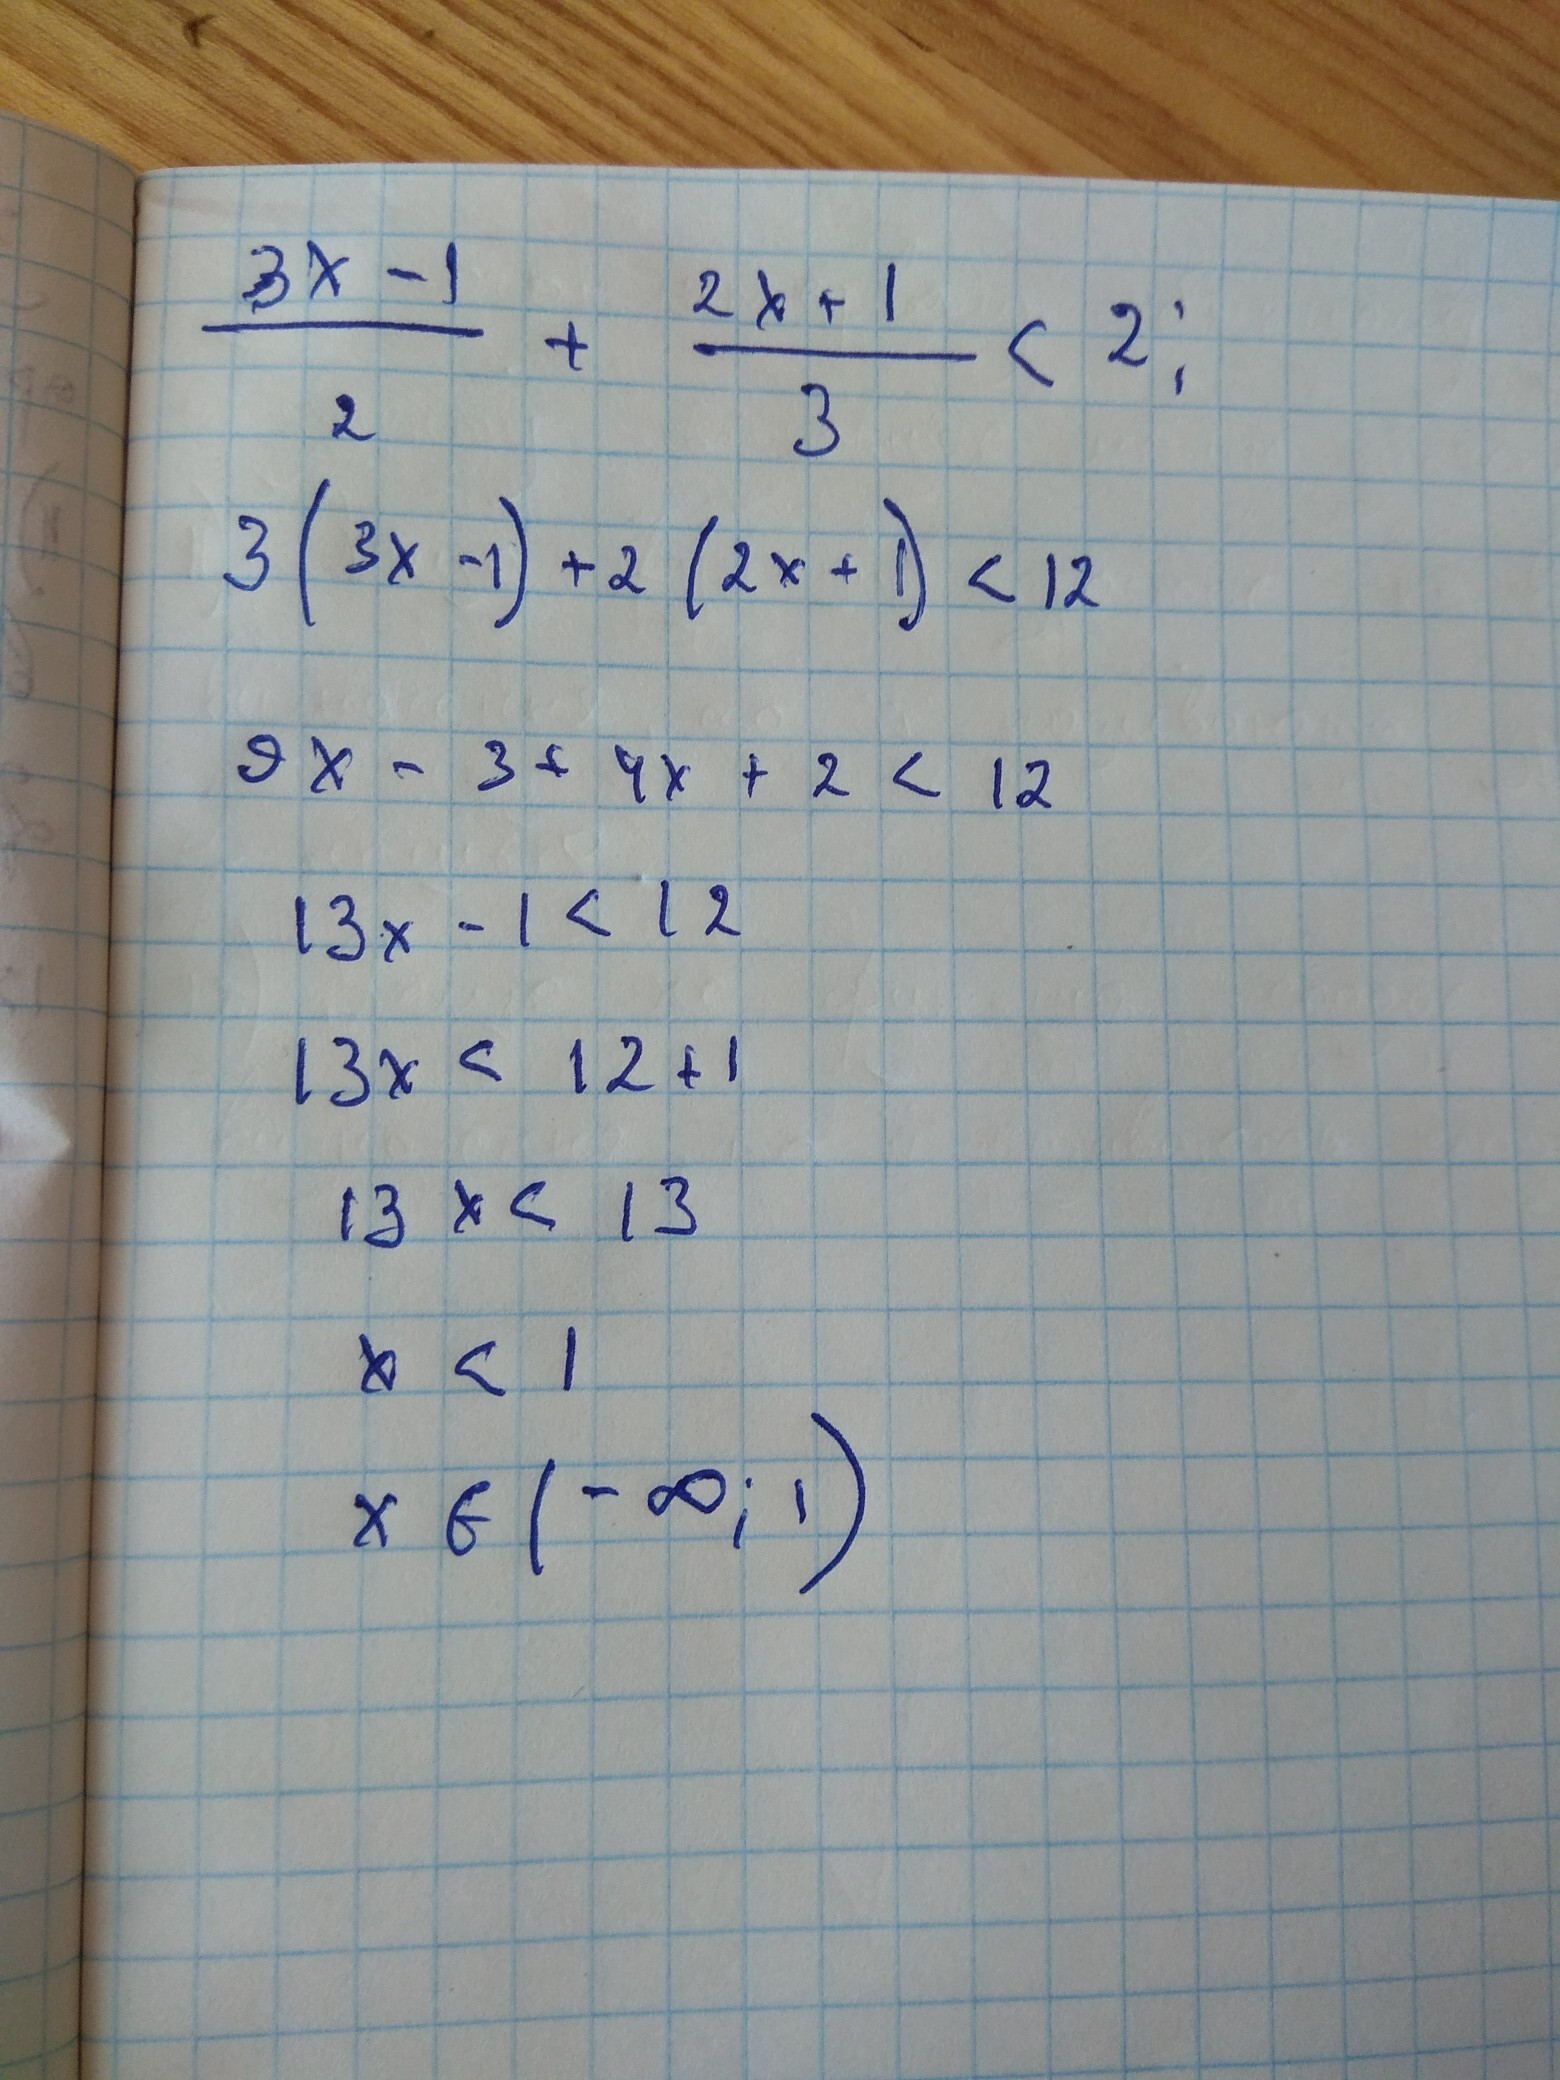 (3x - 1)/2 + (2x + 1)/3 < 2;
3(3x - 1) + 2(2x + 1) < 12
9x - 3 + 4x + 2 < 12
13x - 1 < 12
13x < 12 + 1
13x < 13
x < 1
x ∈ (-∞; 1)